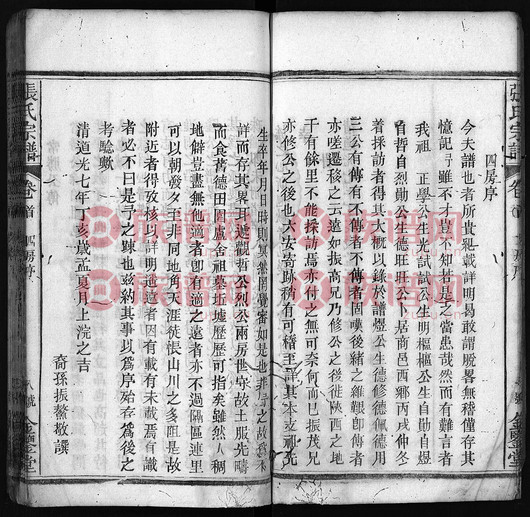 張氏宗譜 卷首 四房序 金鑒堂
四房序
今夫譜也者所貴紀載詳明曷敢謂脫畧無稽僅存其
憶記尋雖不才豈不知若是之當患哉然而有難言者
我祖 正學公生光試試公生明樞樞公生自勛自煜
自哲自烈勛公生德旺旺公卜居商邑西鄉丙戌仲冬
着採訪者得其大概以錄於譜煜公生德修德佩德用
三公有傳有不傳者不傳者固嘆後緒之維艱卽傳者
亦嗟遷移之云遠如振高 乃修公之後徙陝西之地
千有餘里不能採訪焉亦付之無可奈何而已振茂兄
亦修公之後也大安寄跡稍有可稽至于詳其本支祖先
生卒年月日時則莫
詳而存其畧耳遞觀哲公烈公兩房世守故土服先疇
而食舊德田園廬舍祖藝拆墟歷歷可指矣雖然人稠
地僻豈盡無他適者卽有適之遠者亦不過隔區連里
可以朝發夕至非同地角天涯徒悵山川之多阻是故
附近者得攷核以詳明遙遠者因有載有未載焉有識
者必不曰是予之踈也茲約其事以爲序殆存爲後之
考驗歟
清道光七年丁亥歲孟夏月上浣之吉
裔孫振鰲敬譔
張氏宗譜 卷首 四房序 八號 金鑒堂
族譜網